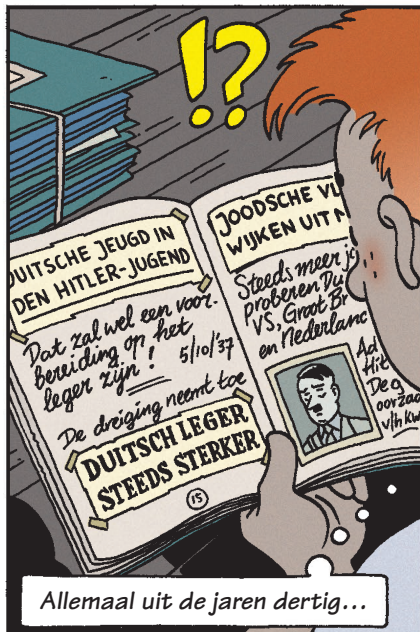 !?
DUITSCHE JEUGD IN
DEN HITLER-JUGEND
Dat zal wel een voor-
bereiding op het
leger zijn!
5/10/'37
De dreiging neemt toe
DUITSCH LEGER
STEEDS STERKER
15
JOODSCHE
WIJKEN UIT
Steeds meer
proberen
VS, Groot
en Nederland
v/h
Allemaal uit de jaren dertig...